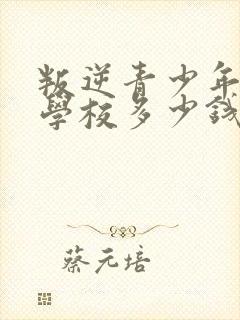 叛逆青少年
學校多少錢
蔡元培